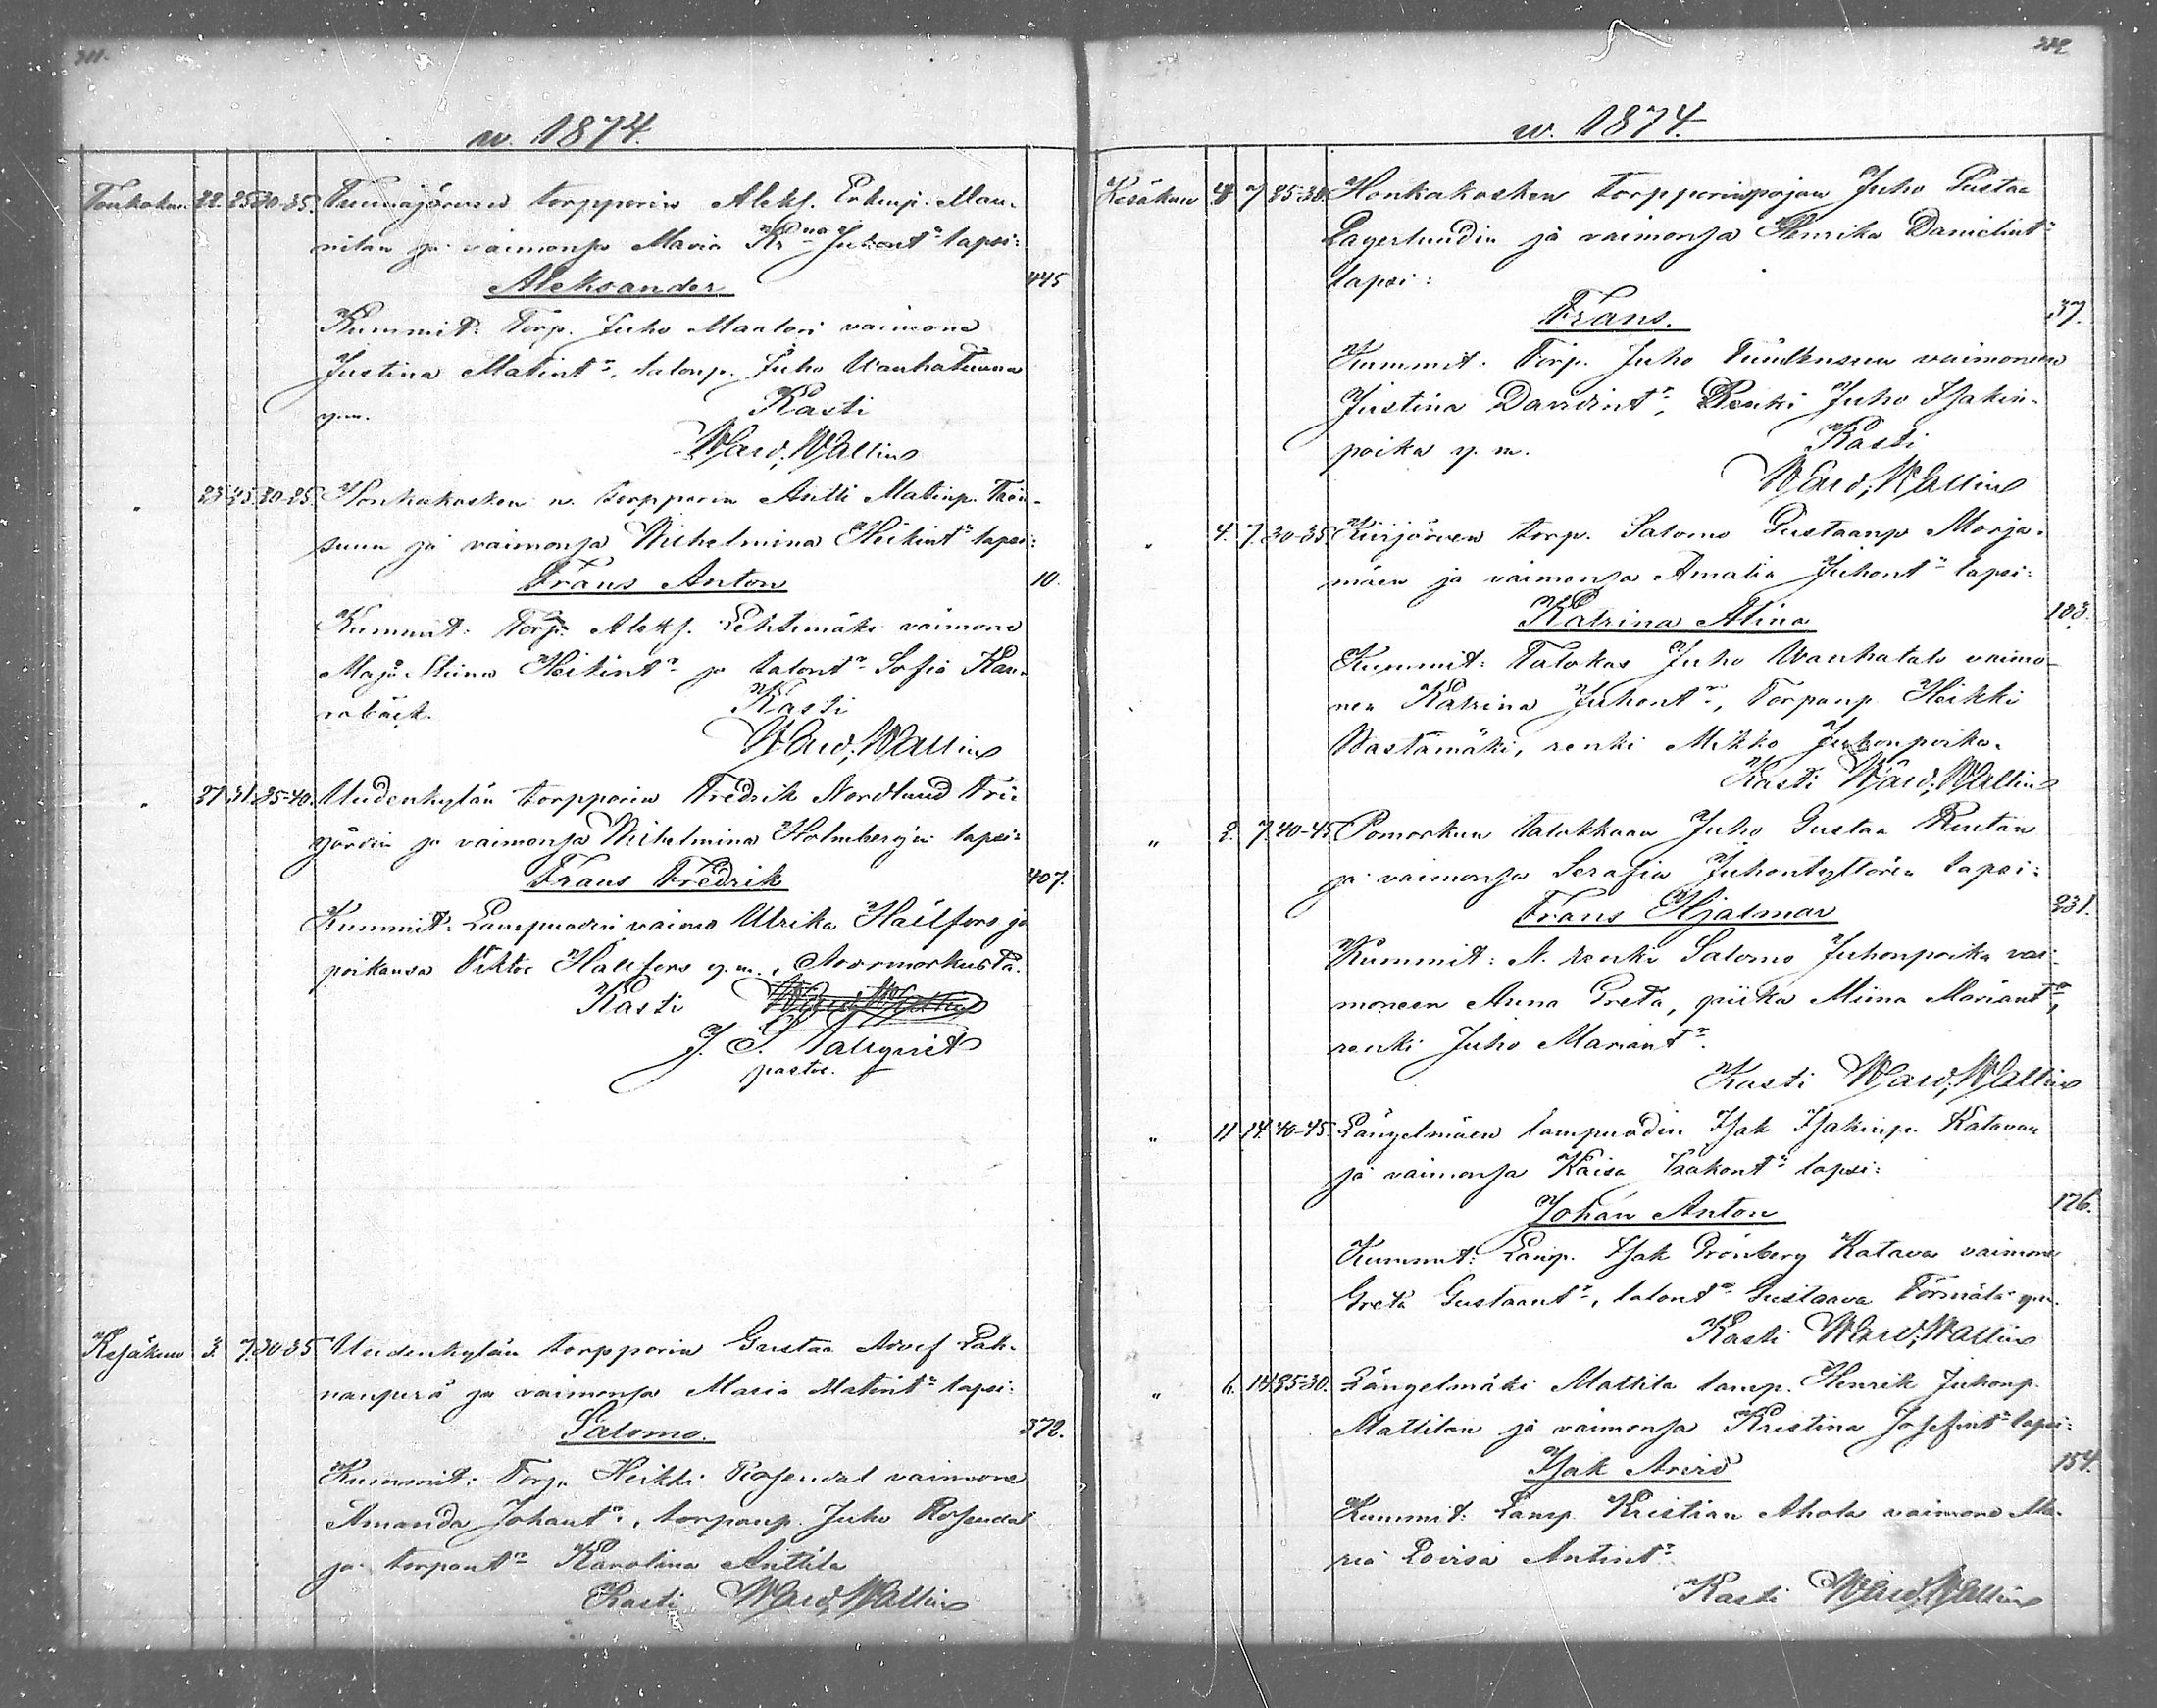 311.
w. 1874.
Toukokuu. 22. 25. 30-35. torpparin Aleks. Erkinp. Man-
nilan ja vaimonsa Maria Kr:na Juhont:n lapsi:
Aleksander 445
Kummit: Torp. Juho vaimone
Justina Matint:r, talonp. Juho Vanhatuuna
y.m. Kasti
Ward. Wallin
" 23 25 30-25. Honkakosken n. torpparin Antti Matinp.
ja vaimonsa Wilhelmina Heikint:n lapsi:
Frans Anton 10.
Kummit: Torp. Aleks. Lehtimäki vaimone
Maja Stiina Heikint:r ja talont:r Sofia
Kasti
Ward. Wallin
" 27 31 35-40. Uudenkylän torpparin Fredrik Nordlund
ja vaimonsa Wilhelmina Holmbergin lapsi:
Frans Fredrik 407.
Kummit: Lampuodin vaimo Ulrika Hällfors ja
poikansa Viktor Hällfors y.m., Noormarkusta.
Kasti
J. S. Pahlqvist
pastor.
Kesäkuu 3. 7. 30-35 Uudenkylän torpparin Gustaa Adolf Lah-
nanperä ja vaimonsa Maria Matint:n lapsi:
Salomo. 372.
Kummit: Torp. Heikki Rosendal vaimone
Amanda Johant:r, torpanp. Juho Rosendal
ja torpant:r Karolina Anttila
Kasti Ward. Wallin
w. 1874.
Kesäkuu 4 7 25-30 Honkakosken torpparinpojan Juho Gustaa
Lagerlundin ja vaimonsa Henrika Danielint:n
lapsi:
Frans. 37.
Kummit: Torp. Juho vaimoneen
Justina Davidint:r, Renki Juho Isakin-
poika y. m. Kasti
Ward. Wallin
" 4. 7. 30-35. torp. Salomo Gustaanp Marja-
mäen ja vaimonsa Amalia Juhont:n lapsi:
Katrina Alina 103.
Kummit: Talokas Juho Vanhatalo vaimo-
nen Katrina Juhont:r, Torpanp Heikki
Wastamäki, renki Mikko Juhonpoika.
Kasti Ward. Wallin
" 2. 7. 40-45 Pomarkun talokkaan Juho Gustaa
ja vaimonsa Serafia Juhontyttären lapsi:
Frans Hjalmar 231.
Kummit: N. renki Salomo Juhonpoika vai-
moneen Anna Greta, piika Miina Mariant:r,
renki Juho Mariant:r.
Kasti Ward. Wallin
" 11 14. 40-45. Längelmäen lampuodin Isak Isakinp. Katavan
ja vaimonsa Kaisa Isakont:n lapsi:
Johan Anton 126.
Kummit: Lamp. Isak Grönberg Katava vaimone
Greta Gustaant:r, talont:r Gustaava Törmälä y.m.
Kasti Ward. Wallin
" 6. 14. 25-30. Längelmäki Mattila lamp. Henrik Juhonp.
Mattilan ja vaimonsa Kristina Josefint:n lapsi:
Isak Arvid 154.
Kummit: Lamp Kristian Ahola vaimone Ma-
ria Lovisa Antint:r.
Kasti Ward. Wallin